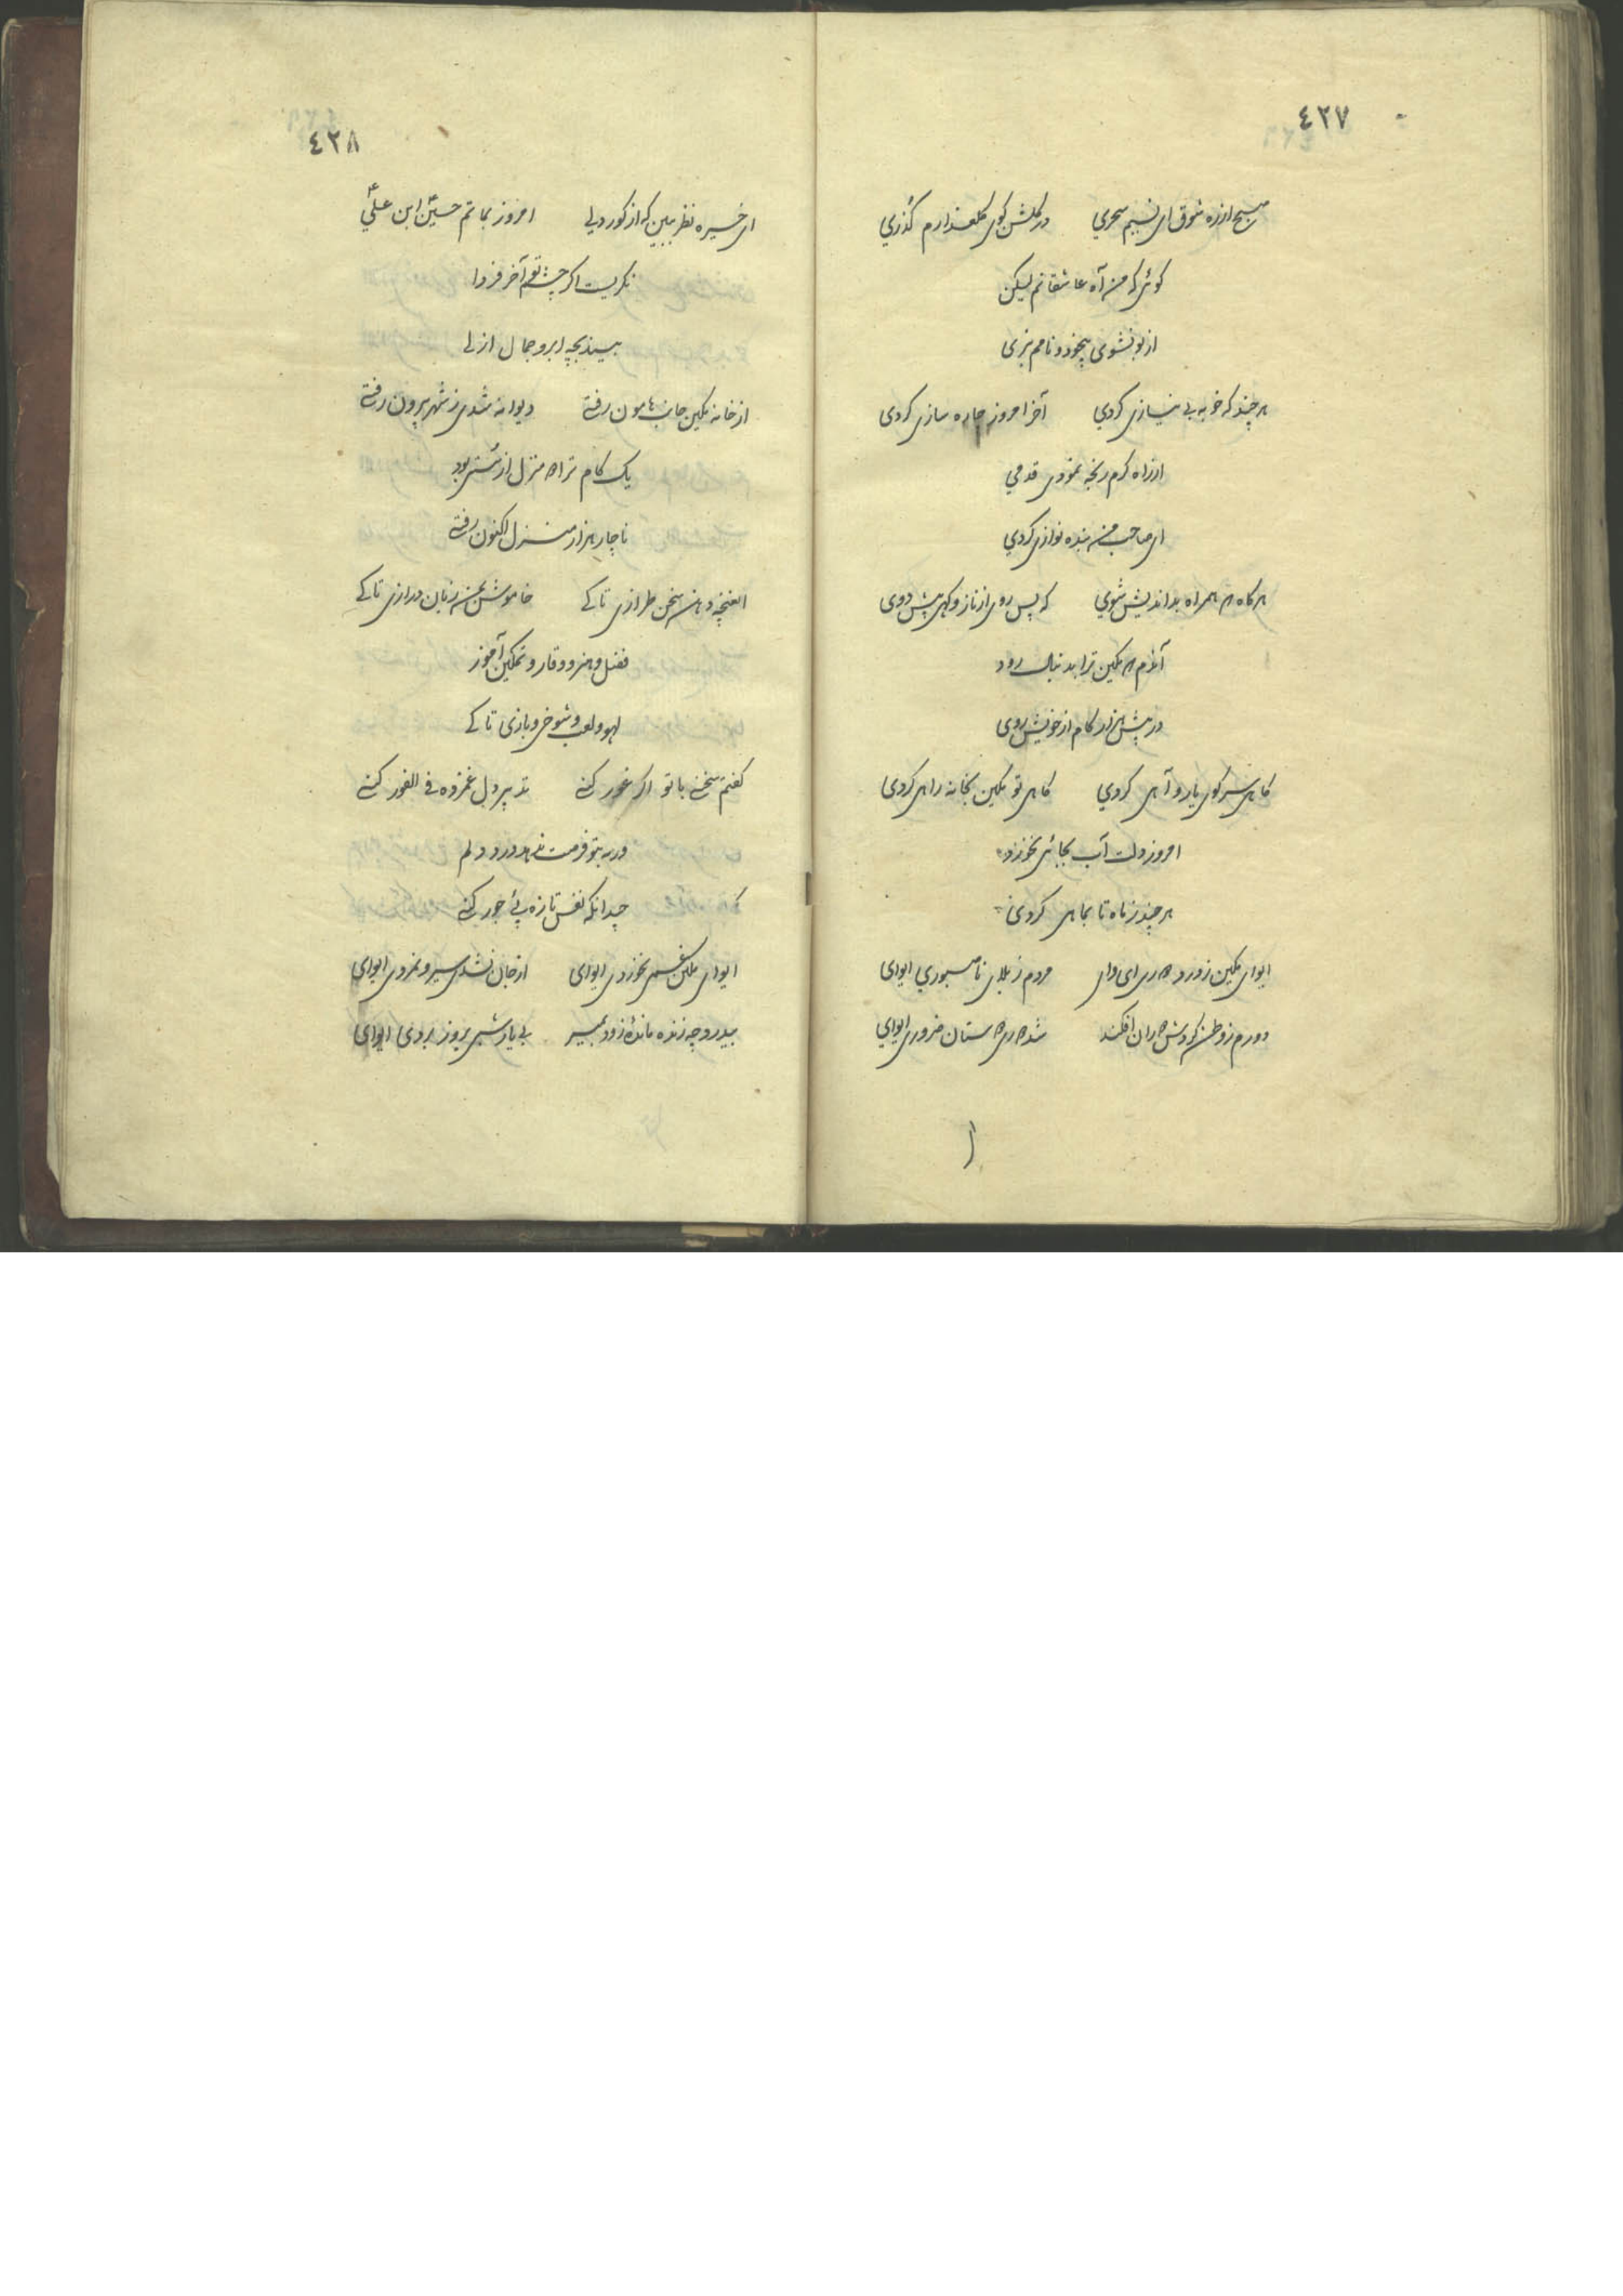 ٤٢٧
صبح از ره شوق ای نسیم سحري در گلشن کوی گلعذارم گذري
گوئی که من آه عاشقانم لیکن
از بو نشوی بیخود و نامم نبری
هر چند که خو به بی نیازی کردي آخر امروز چاره سازی کردی
از راه کرم رنجه نمودی قدمي
ای صاحب من بنده نوازی کردي
هر گاه که همراه بداندیش شوي گه پس روی از ناز و گهی پیش دوی
آندم که مکین ترا بدنبال رود
در پیش هزار گام از خویش روی
گاهی سر کوی یار و آهی کردي گاهی تو مکین بخانه راهی کردی
امروز دلت آب بجائی نخورد
هر چند ز ماه تا بماهی کردی
ایوای مکین ز درد دوری ایوای مردم ز بلای ناصبوري ایوای
دورم ز وطن گردش دوران افکند شد دوری دوستان ضروری ایوای
٤٢٨
ای خیره نظر ببین که از کور دلی امروز بماتم حسین ابن علي
نگریست اگر چشم تو آخر فردا
بیند بچه ابرو جمال ازلی
از خانه مکین جانب هامون رفتی دیوانه شدی ز شهر بیرون رفتی
یک گام ترا منزل از هستی بود
ناچار هزار منزل اکنون رفتی
ای غنچه دهن سخن طرازی تا کے خاموش نشین زبان درازی تا کے
فضل و هنر و وقار و تمکین آموز
لهو و لعب و شوخی و بازی تا کے
گفتم سخنے با تو اگر غور کنے تدبیر دل غمزده فی الفور کنے
ور نه بتو فرصت ندهد درد دلم
چندانکه نفس تازه پئ جور کنے
ایوای مکین غمی نخوردی ایوای از جان نشدی سیر و نمردی ایوای
بیدرد چه زنده ماندهٔ زود بمیر بی یار شبی بروز بردی ایوای